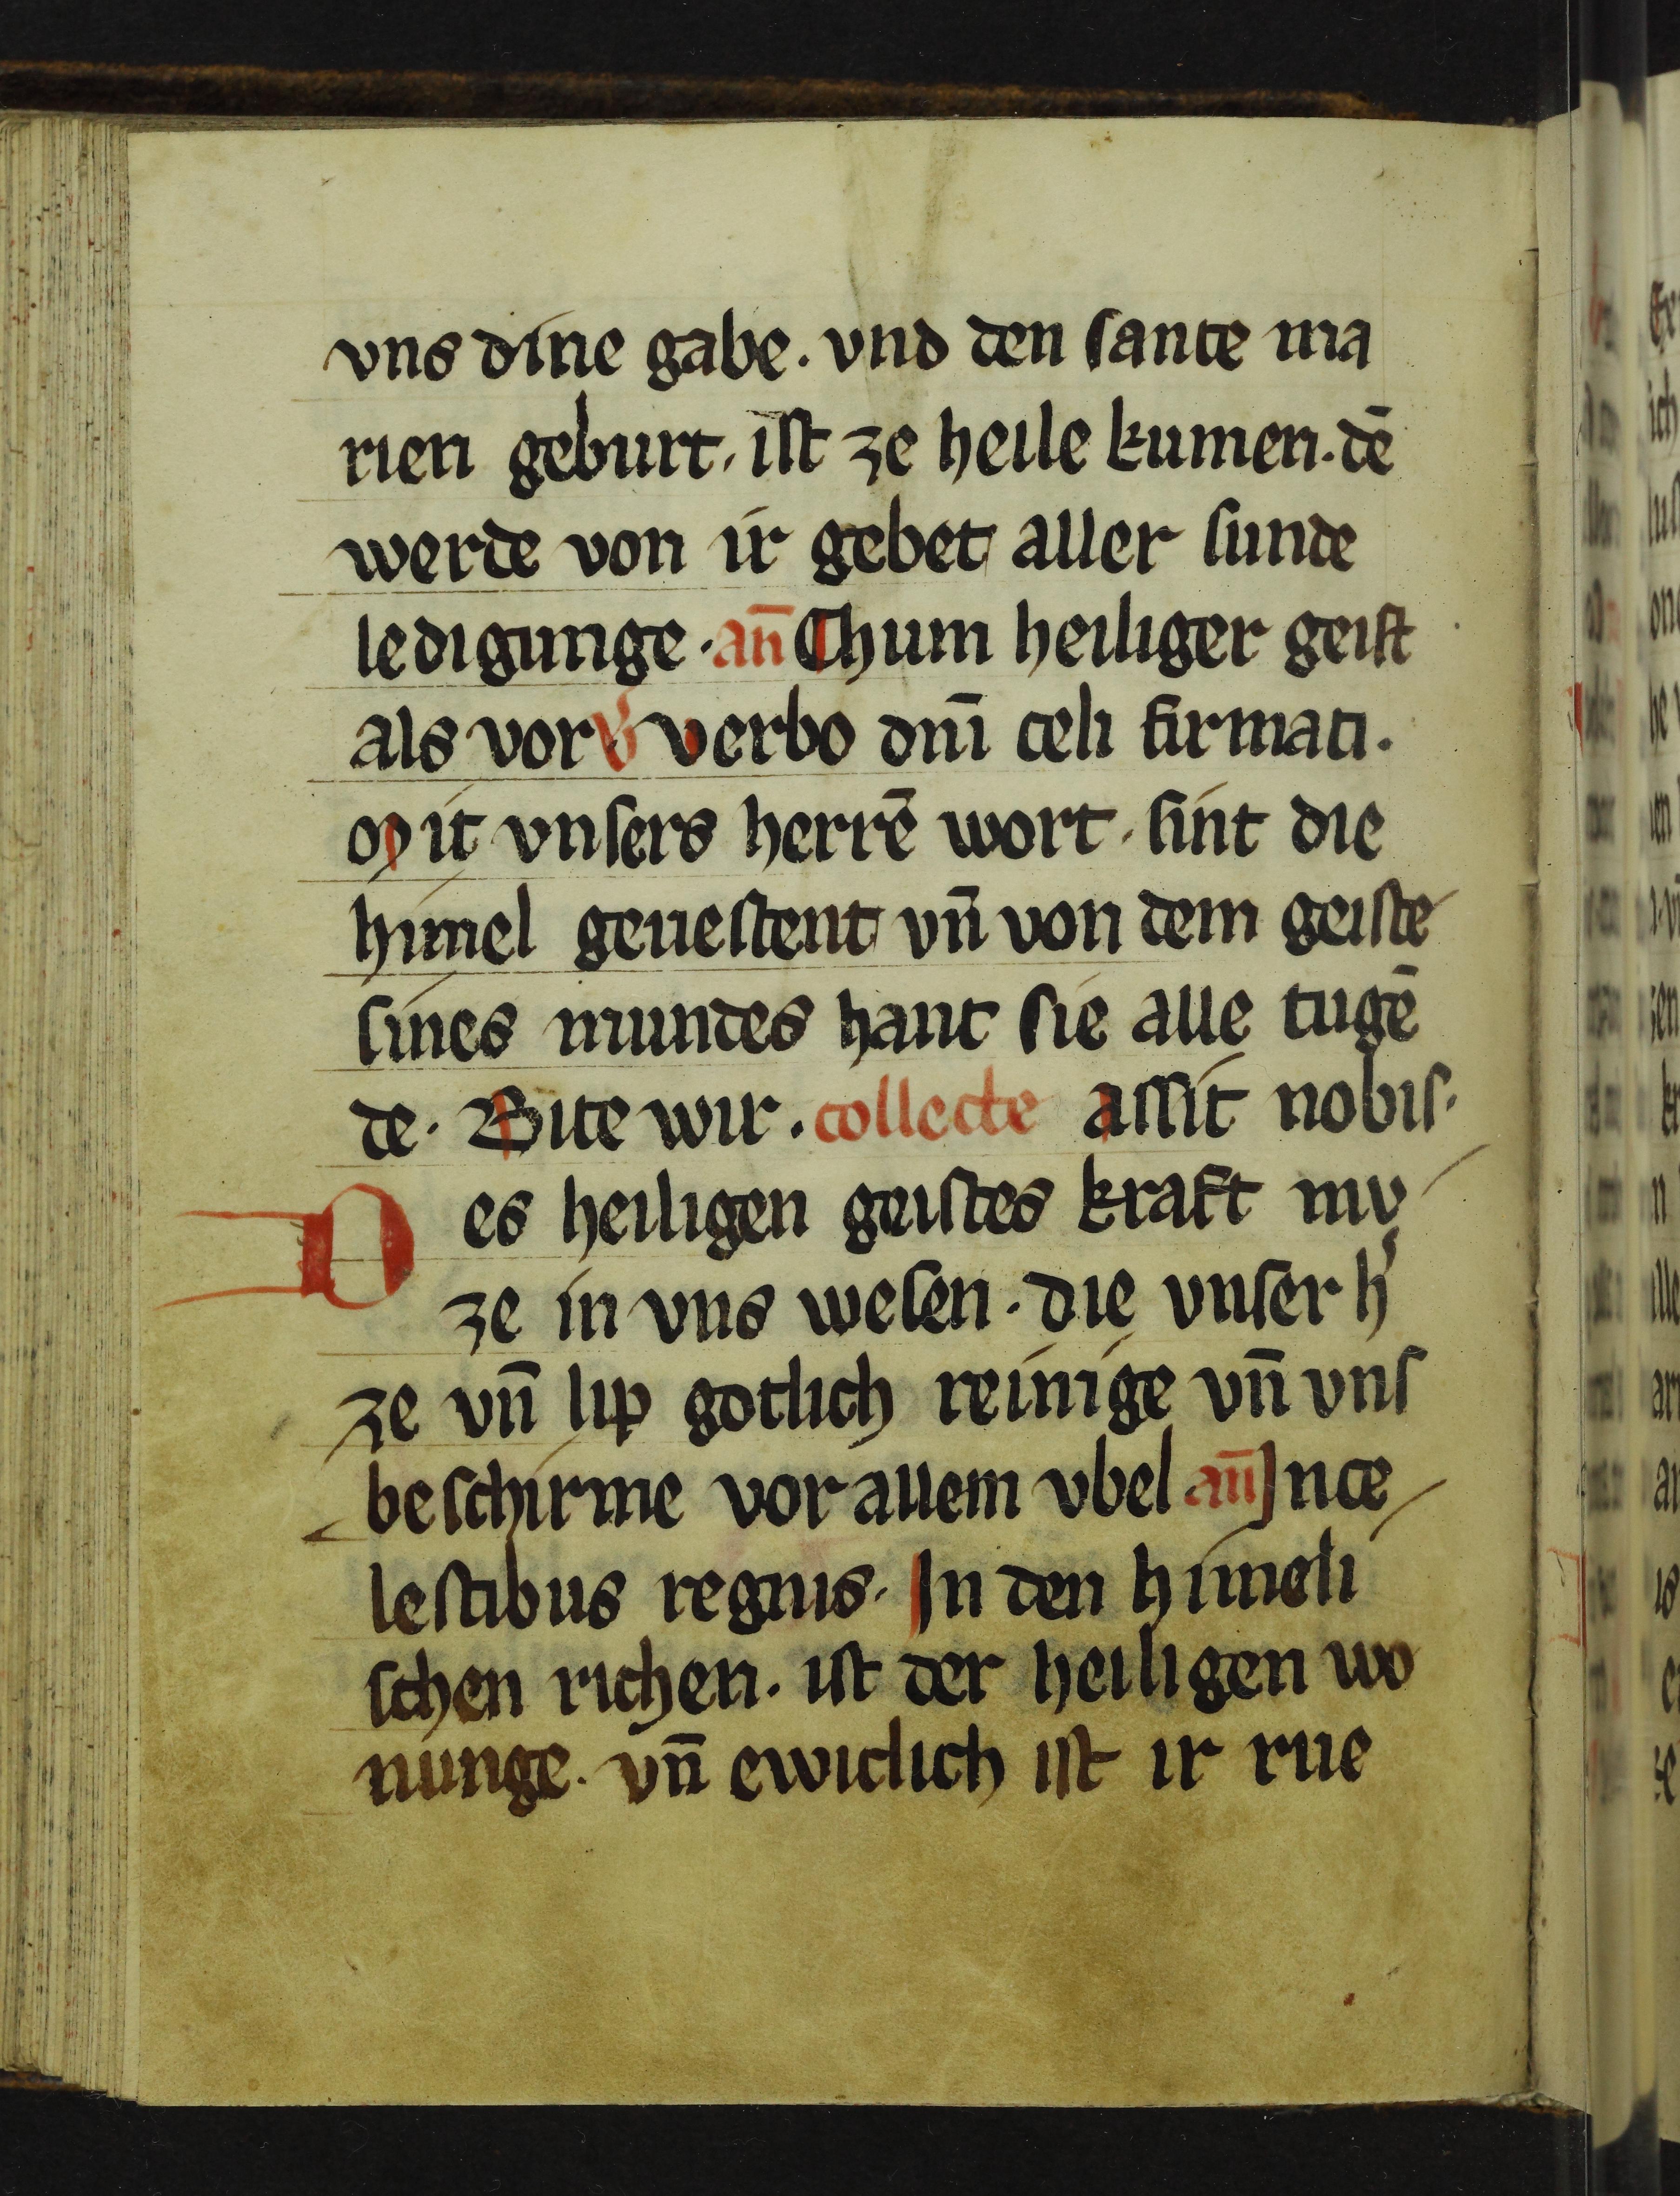 vns dine gabe. vnd den sante ma
rien geburt. ist ze heile kumen. dē
werde von ir gebet aller sunde
ledigunge. an̄ Chum heiliger geist
als vor ℣ verbo dnī celi firmati.
Mit vnsers herrē wort. sint die
himel geuestent vn̄ von dem geiste
sines mundes hant sie alle tugē
de. Bite wir. collecte assit nobis.
Des heiligen geistes kraft mv
ze in vns wesen. die vnser h'
ze vn̄ lip gotlich reinige vn̄ vns
beschirme vor allem vbel an̄ Jn ce
lestibus regnis. Jn den himeli
schen richen. ist der heiligen wo
nunge. vn̄ ewiclich ist ir rue